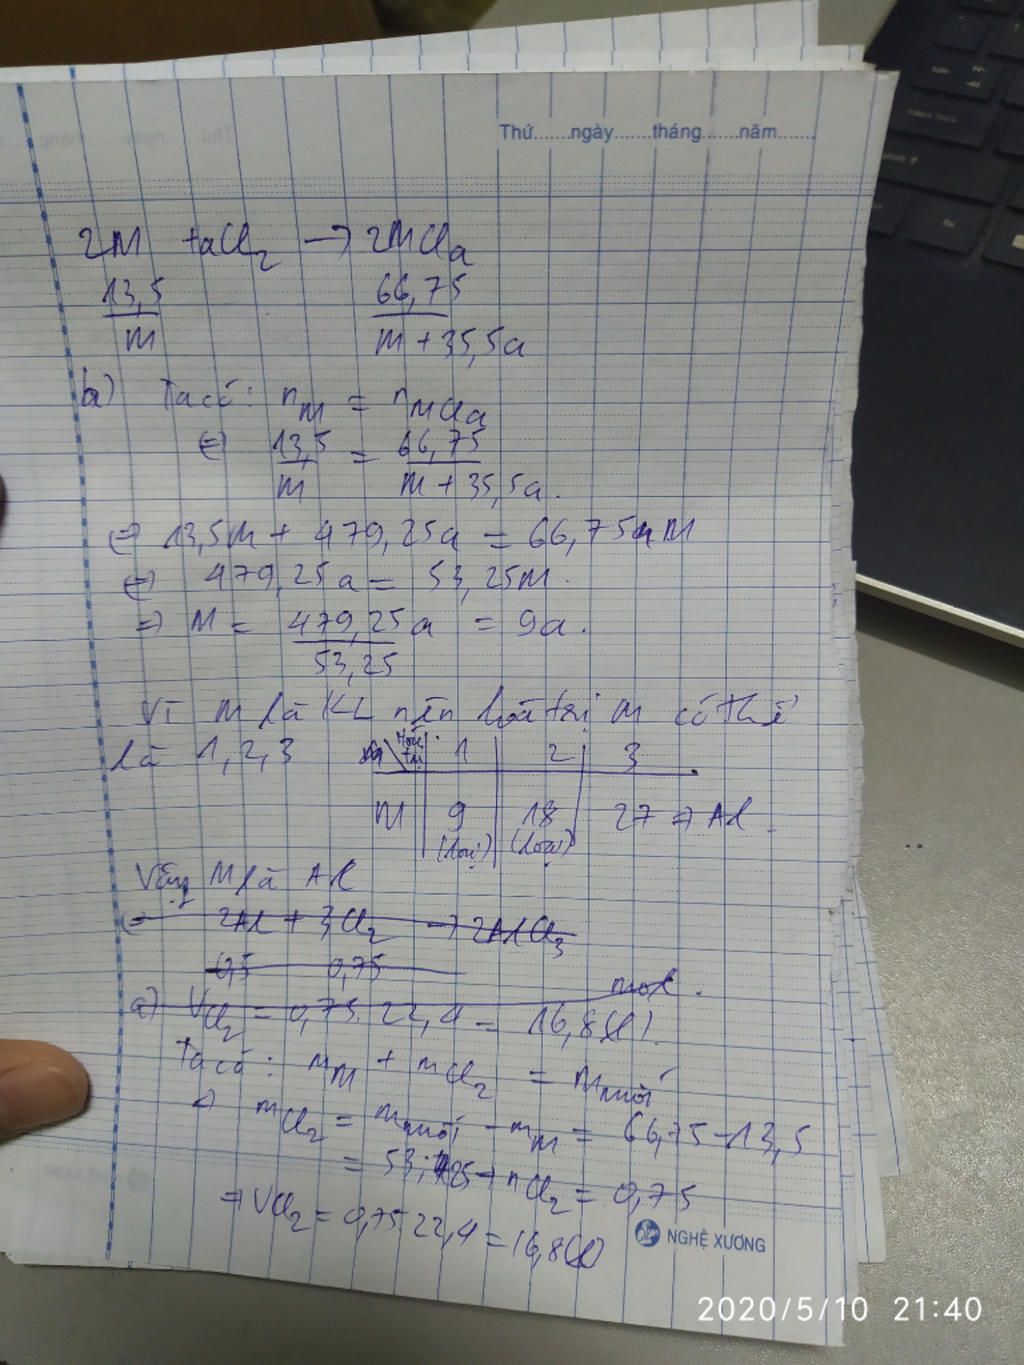 Thứ......ngày......tháng......năm......
2M + aCl₂ → 2MClₐ
13,5/M 66,75/(M + 35,5a)
b) Ta có: n_M = n_MClₐ
⇔ 13,5/M = 66,75/(M + 35,5a)
⇔ 13,5M + 479,25a = 66,75M
⇔ 479,25a = 53,25M.
⇒ M = 479,25/53,25 a = 9a.
Vì M là KL nên hoá trị M có thể
là 1, 2, 3
Hoá trị 1 2 3
M 9 18 27 ⇒ Al
(loại) (loại)
Vậy M là Al
2Al + 3Cl₂ → 2AlCl₃
0,5 0,75 mol
a) V_Cl₂ = 0,75.22,4 = 16,8(l).
Ta có: m_M + m_Cl₂ = m_muối
⇒ m_Cl₂ = m_muối - m_M = 66,75 - 13,5
= 53,25 → n_Cl₂ = 0,75
⇒ V_Cl₂ = 0,75.22,4 = 16,8(l)
NGHỆ XƯƠNG
2020/5/10 21:40